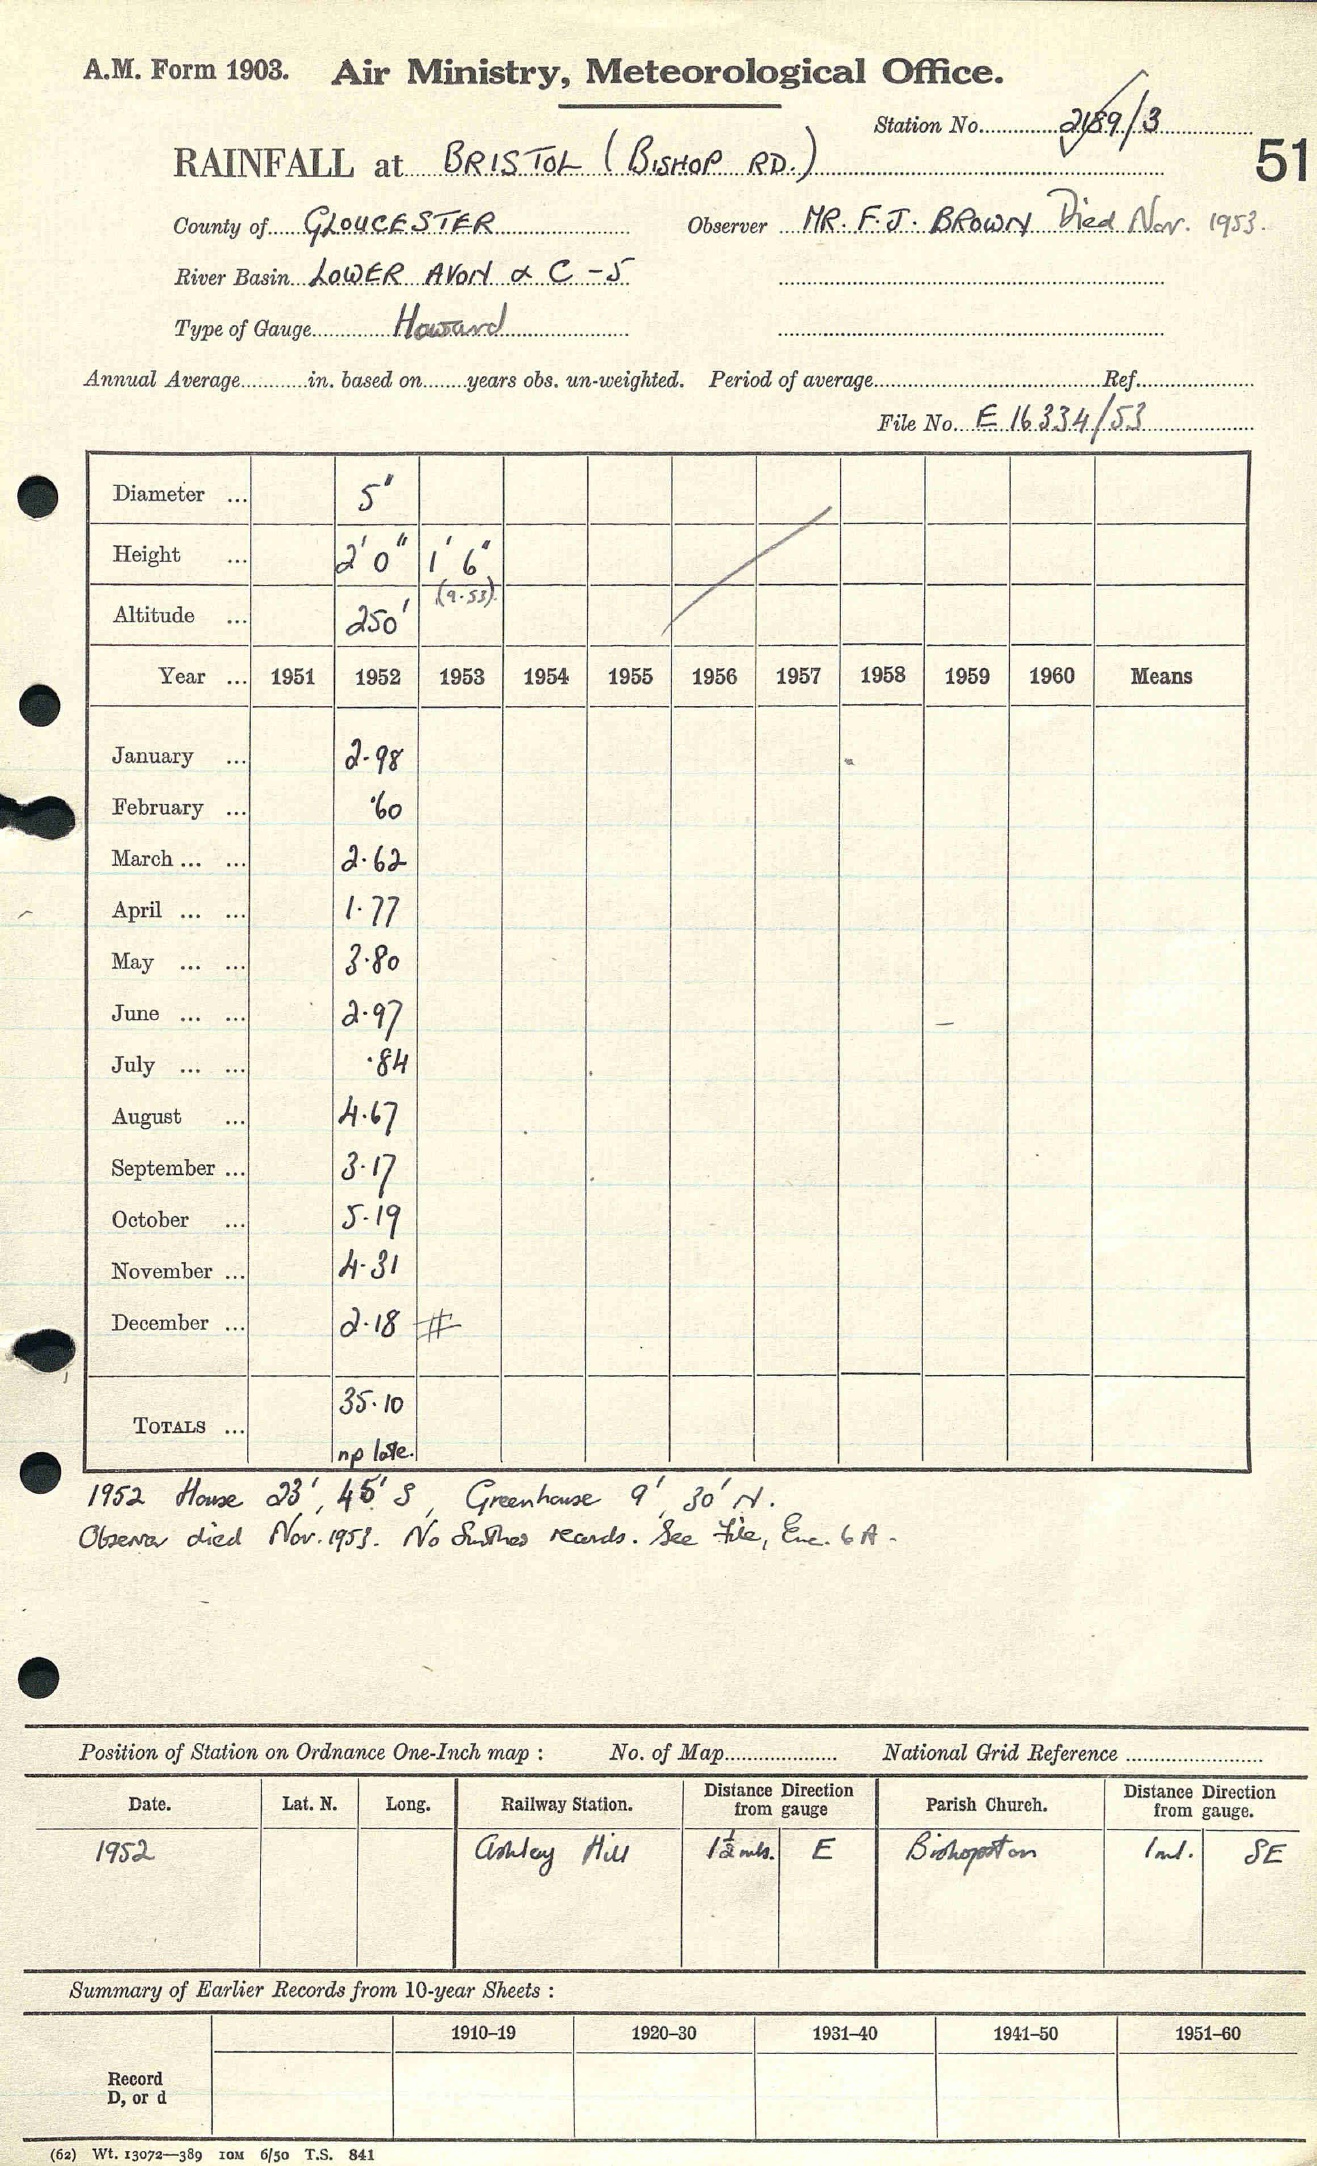 A.M. Form 1903. Air Ministry, Meteorological Office.
Station No. 2189/3
51
RAINFALL at BRISTOL (BISHOP RD.)
County of GLOUCESTER Observer MR. F.J. BROWN Died Nov. 1953.
River Basin LOWER AVON & C - 5
Type of Gauge Howard
Annual Average in. based on years obs. un-weighted. Period of average Ref.
File No. E 16334/53
Diameter ... 5"
Height ... 2' 0" 1' 6"
(9.53)
Altitude ... 250'
Year ... 1951 1952 1953 1954 1955 1956 1957 1958 1959 1960 Means
January ... 2.98
February ... .60
March ... ... 2.62
April ... ... 1.77
May ... ... 3.80
June ... ... 2.97
July ... ... .84
August ... 4.67
September ... 3.17
October ... 5.19
November ... 4.31
December ... 2.18 #
TOTALS ... 35.10
np late.
1952 House 23', 45' S, Greenhouse 9', 30' N.
Observer died Nov. 1953. No further records. See File, Enc. 6A.
Position of Station on Ordnance One-Inch map : No. of Map National Grid Reference
Date. Lat. N. Long. Railway Station. Distance Direction from gauge Parish Church. Distance Direction from gauge.
1952 Ashley Hill 1½ mls. E Bishopston 1 ml. SE
Summary of Earlier Records from 10-year Sheets :
1910–19 1920–30 1931–40 1941–50 1951–60
Record
D, or d
(62) Wt. 13072—389 10M 6/50 T.S. 841